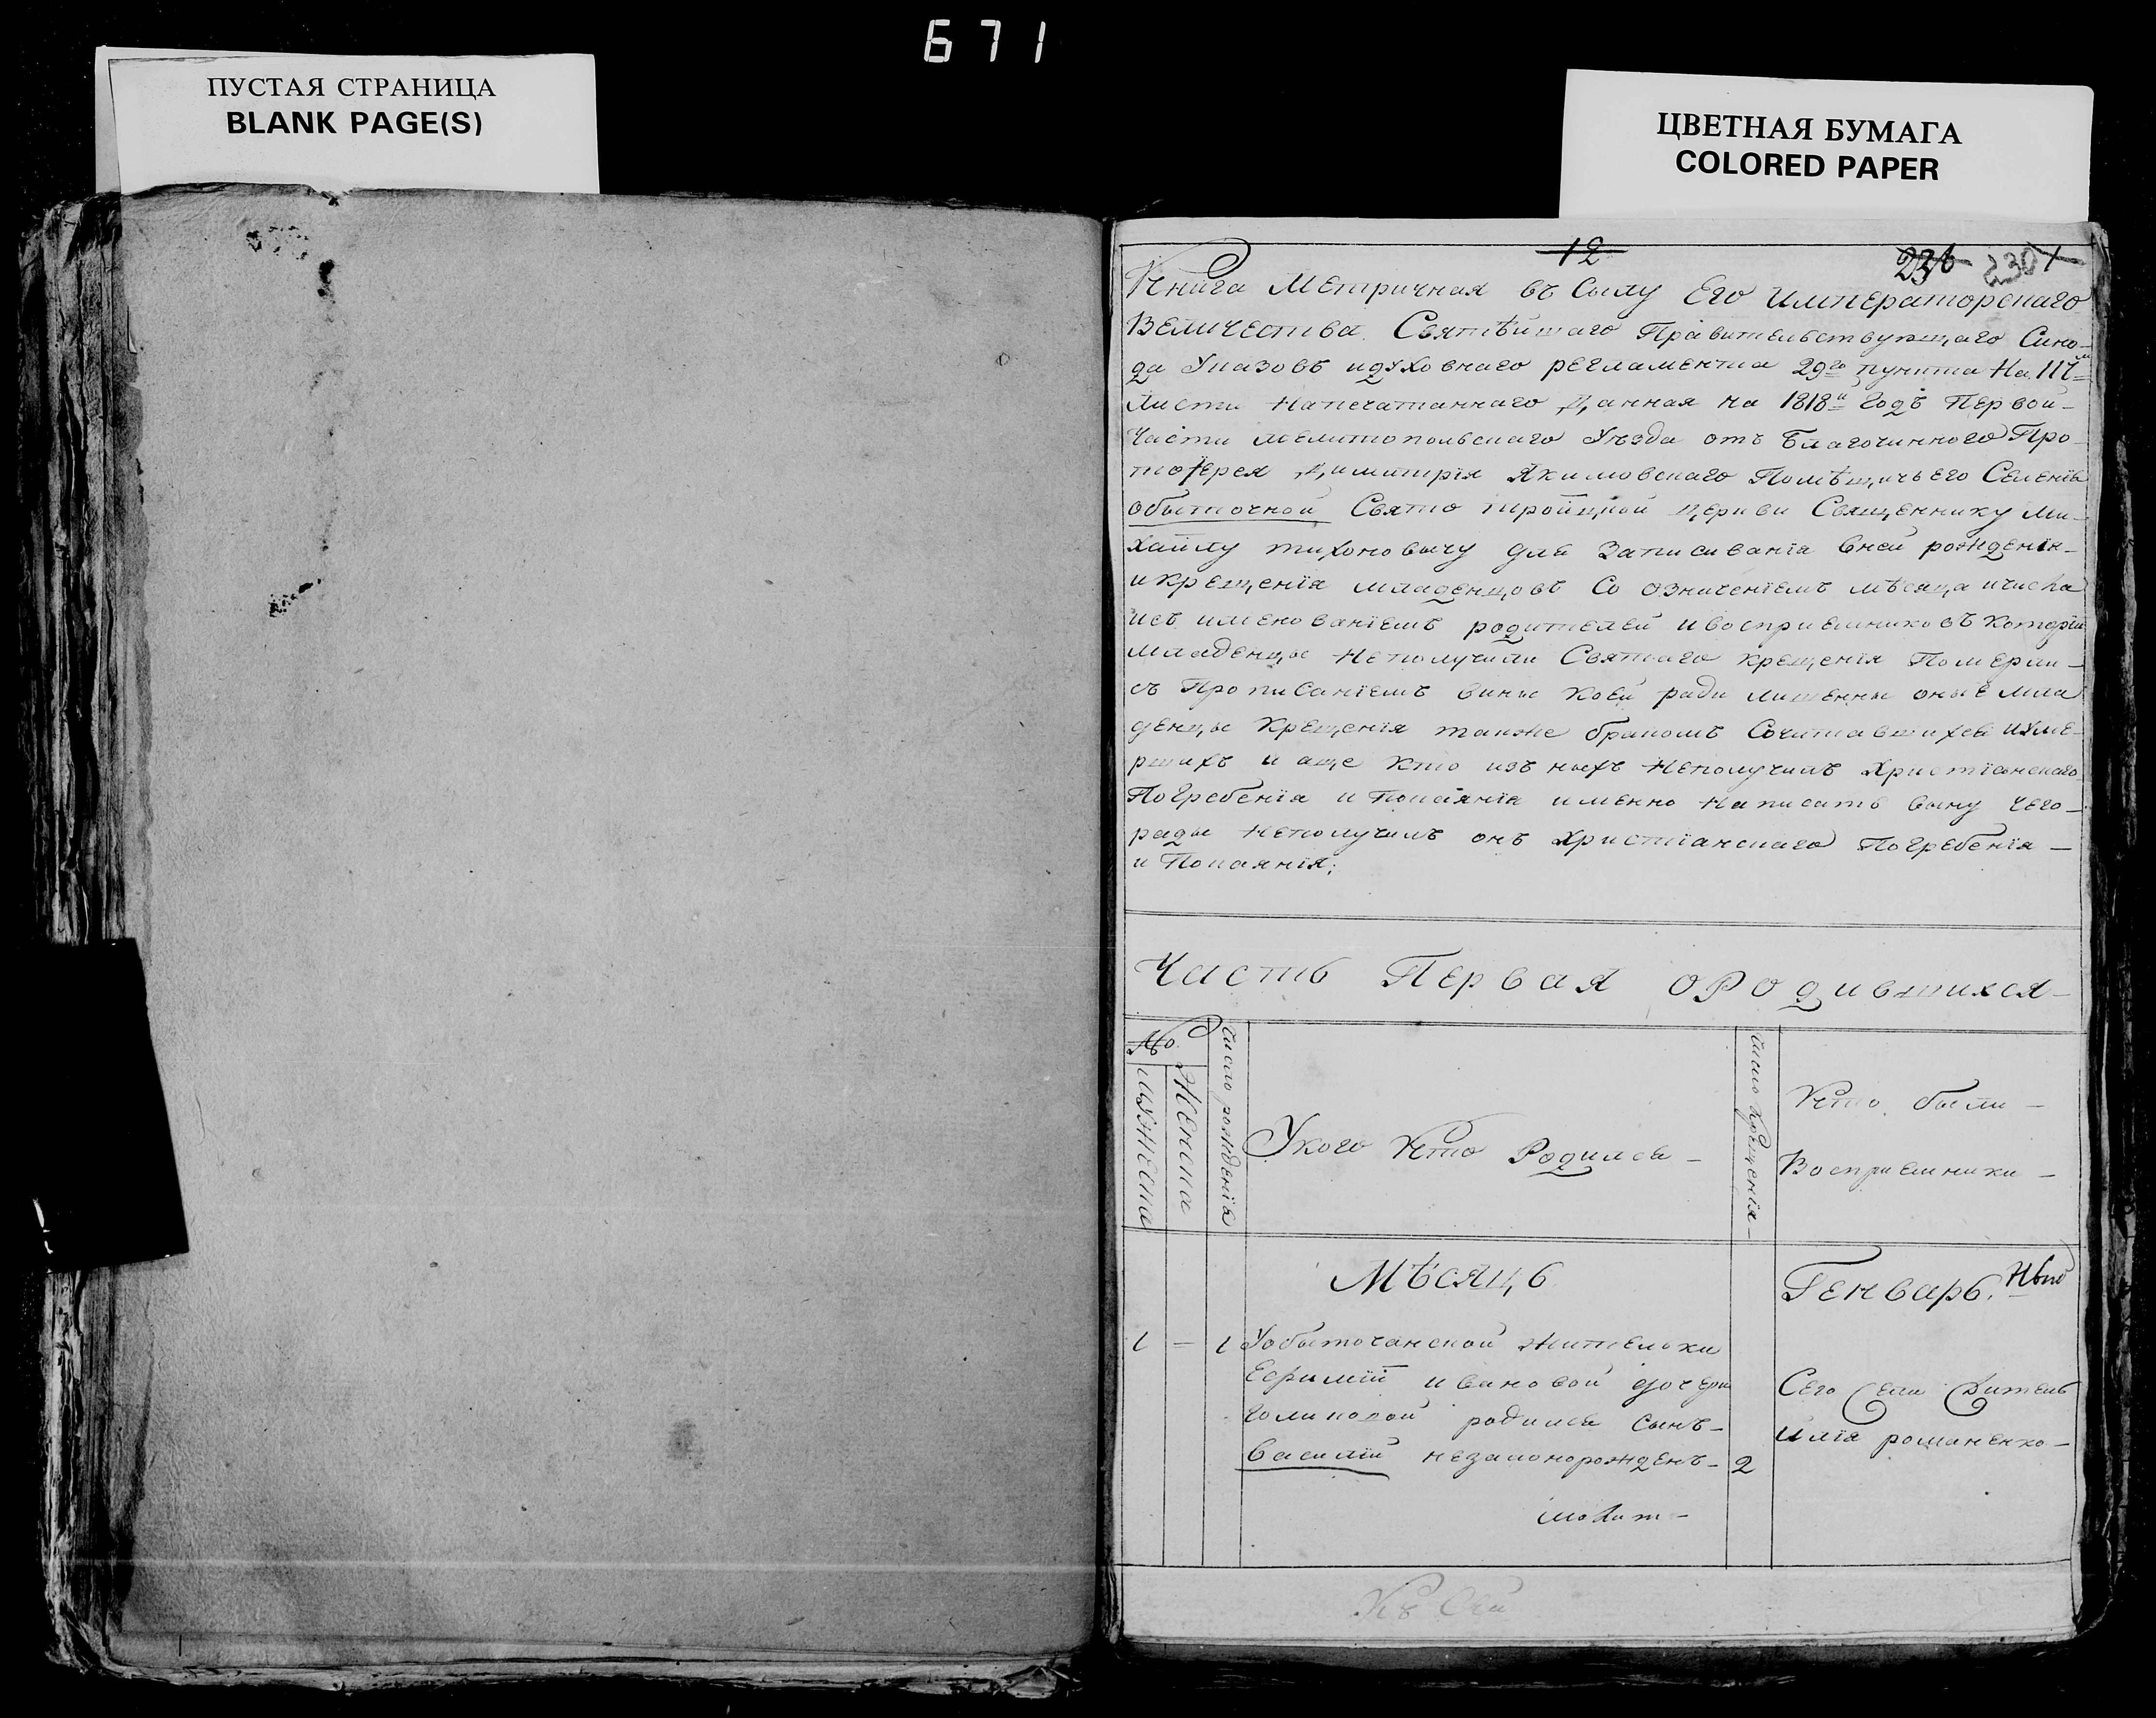 671
ПУСТАЯ СТРАНИЦА
BLANK PAGE(S)
ЦВЕТНАЯ БУМАГА
COLORED PAPER
12 236 230 1
Книга Метричная въ Силу Его императорскаго
Величества Святѣйшаго Правительствующаго Сино-
да Указовъ идуховнаго регламента 29го пункта На 117
Листи Напечатаннаго Данная на 1818й годъ Первой-
Части мелитопольскаго Уѣзда отъ Благочинного Про-
тоіерея Димитрія Якимовскаго Помѣщичьего Селенія
обыточной Свято тройцкой церкви Священнику Ми-
хаилу тихоновичу для Записиванія вней рожденія-
и крещенія младенцовъ Со означеніемъ мѣсяца ичисла
исъ именованіемъ родителей ивоспріемниковъ которіи
младенцы Неполучили Святаго крещенія Померли-
съ Прописаніемъ вины коей ради лишенны оные мла
денцы Крещенія также бракомъ Сочитавшихся иуме-
ршихъ и аще Кто изъ ныхъ Неполучилъ Христіанскаго
Погребенія и Покаянія именно Написать вину чего-
рады Неполучилъ онъ Христіанскаго Погребенія-
и Покаянія;
Часть Первая оРодившихся-
№
мужеска
Женска
число рожденія
Укого Кто Родился-
число крещенія-
Кто были-
Воспріемники-
Мѣсяцъ
Генварь.
1 - 1 Уобыточанской жительки
Ефиміи ивановой дочери
родился сынъ-
Василій незаконорожденъ- 2
Сего Села Житель
илія романенко-